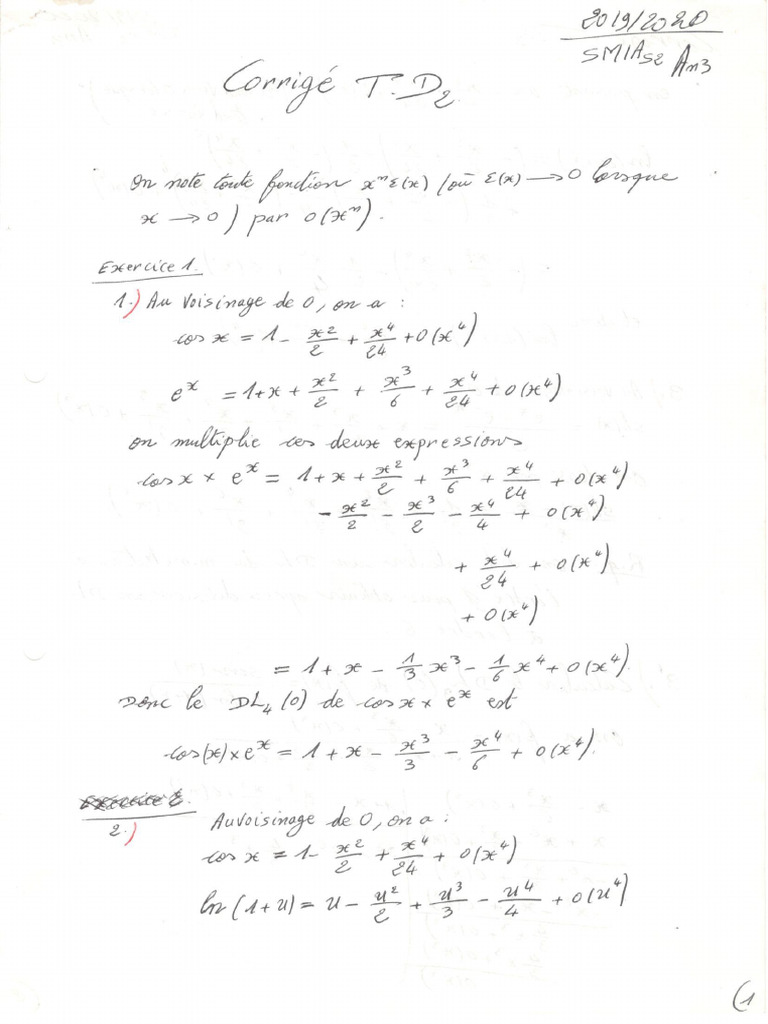 2019/2020
SMIA S2 An3
Corrigé T.D2
On note toute fonction xⁿε(x) (où ε(x) → 0 lorsque
x → 0) par o(xⁿ).
Exercice 1.
1.) Au voisinage de 0, on a :
cos x = 1 - x²/2 + x⁴/24 + o(x⁴)
eˣ = 1 + x + x²/2 + x³/6 + x⁴/24 + o(x⁴)
on multiplie ces deux expressions
cos x × eˣ = 1 + x + x²/2 + x³/6 + x⁴/24 + o(x⁴)
- x²/2 - x³/2 - x⁴/4 + o(x⁴)
+ x⁴/24 + o(x⁴)
+ o(x⁴)
= 1 + x - 1/3 x³ - 1/6 x⁴ + o(x⁴)
Donc le DL₄(0) de cos x × eˣ est
cos(x) × eˣ = 1 + x - x³/3 - x⁴/6 + o(x⁴).
2.) Au voisinage de 0, on a :
cos x = 1 - x²/2 + x⁴/24 + o(x⁴)
ln(1+u) = u - u²/2 + u³/3 - u⁴/4 + o(u⁴)
(1